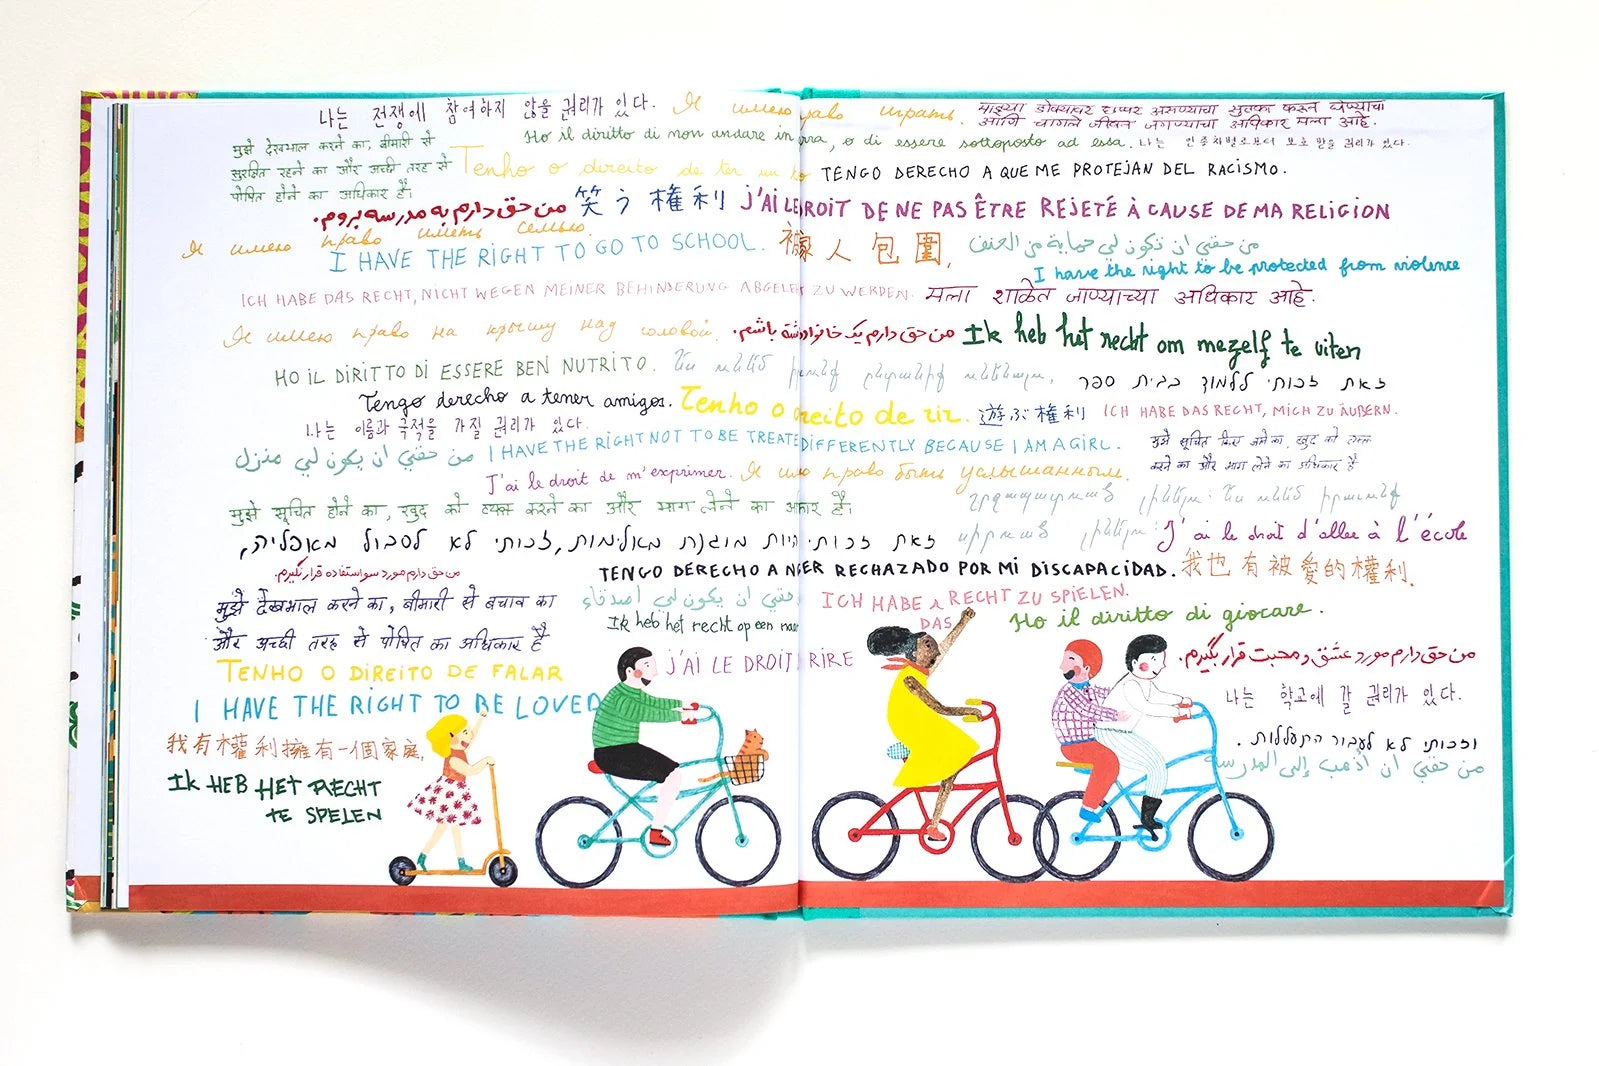 나는 전쟁에 참여하지 않을 권리가 있다. Я имею раво играть.
आणि चांगले जीवन जगण्याचा अधिकार मला आहे.
मुझे देखभाल करने का, बीमारी से
Ho il diritto di non andare in rra, o di essere sottoposto ad essa. 나는
सुरक्षित रहने का और अच्छी तरह से
Tenho o direito de ter um to TENGO DERECHO A QUE ME PROTEJAN DEL RACISMO.
पोषित होने का अधिकार है।
من حق دارم به مدرسه بروم. 笑う権利 J'AI LE ROIT DE NE PAS ÊTRE REJETÉ À CAUSE DE MA RELIGION
Я имею право иметь семью.
I HAVE THE RIGHT TO GO TO SCHOOL. 人包圍, من حقي ان تكون لي حماية من العنف
I have the right to be protected from violence
ICH HABE DAS RECHT, NICHT WEGEN MEINER BEHINDERUNG ABGELE ZU WERDEN. मला शाळेत जाण्याच्या अधिकार आहे.
Я имею право на крышу над головой. من حق دارم یک خانواده داشته باشم. Ik heb het recht om mezelf te uiten
HO IL DIRITTO DI ESSERE BEN NUTRITO. זאת זכותי ללמוד בבית ספר
Tengo derecho a tener amigos. Tenho o reito de rir. 遊ぶ権利 ICH HABE DAS RECHT, MICH ZU ÄUẞERN.
나는 이름과 국적을 가질 권리가 있다.
من حقي ان يكون لي منزل I HAVE THE RIGHT NOT TO BE TREATE DIFFERENTLY BECAUSE I AM A GIRL.
J'ai le droit de m'exprimer. Я име право быть услышанным.
करने का और भाग लेने का अधिकार है
मुझे सूचित होने का, खुद को व्यक्त करने का और भाग लेने का अ कार है।
J'ai le droit d'aller à l'école
זאת זכותי היות מוגנת מאלימות, זכותי לא לסבול מאפליה,
من حق دارم مورد سو استفاده قرار نگیرم.
TENGO DERECHO A N SER RECHAZADO POR MI DISCAPACIDAD. 我也有被愛的權利.
मुझे देखभाल करने का, बीमारी से बचाव का حقي ان يكون لي اصدقاء ICH HABE DAS RECHT ZU SPIELEN.
Ik heb het recht op een naam Ho il diritto di giocare.
और अच्छी तरह से पोषित का अधिकार है
TENHO O DIREITO DE FALAR J'AI LE DROIT RIRE من حق دارم مورد عشق و محبت قرار بگیرم.
I HAVE THE RIGHT TO BE LOVED 나는 학교에 갈 권리가 있다.
我有權利擁有一個家庭. וזכותי לא לעבור התעללות.
من حقي ان أذهب إلى المدرسة
IK HEB HET RECHT
TE SPELEN